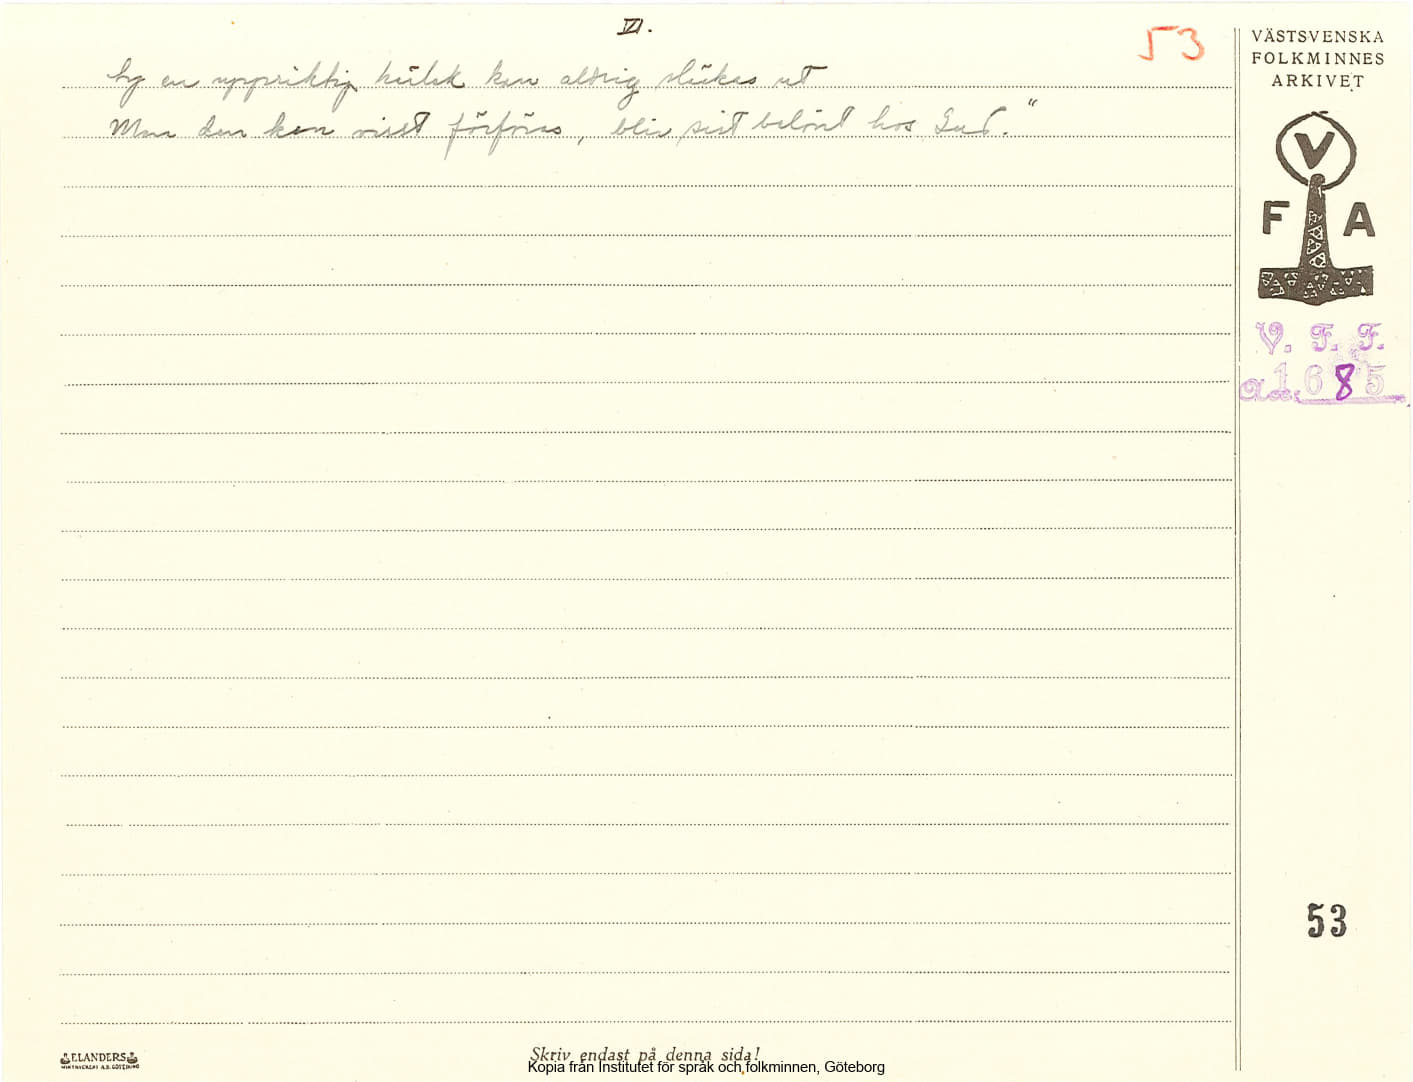 VI.
53
VÄSTSVENSKA
FOLKMINNES
ARKIVET
ty en uppriktig kärlek kan aldrig släckas ut
Men den kan visst förföras, blir sist belönt hos Gud."
V
F A
V. F. F.
1685
53
ELANDERS
Skriv endast på denna sida!
Kopia från Institutet för språk och folkminnen, Göteborg